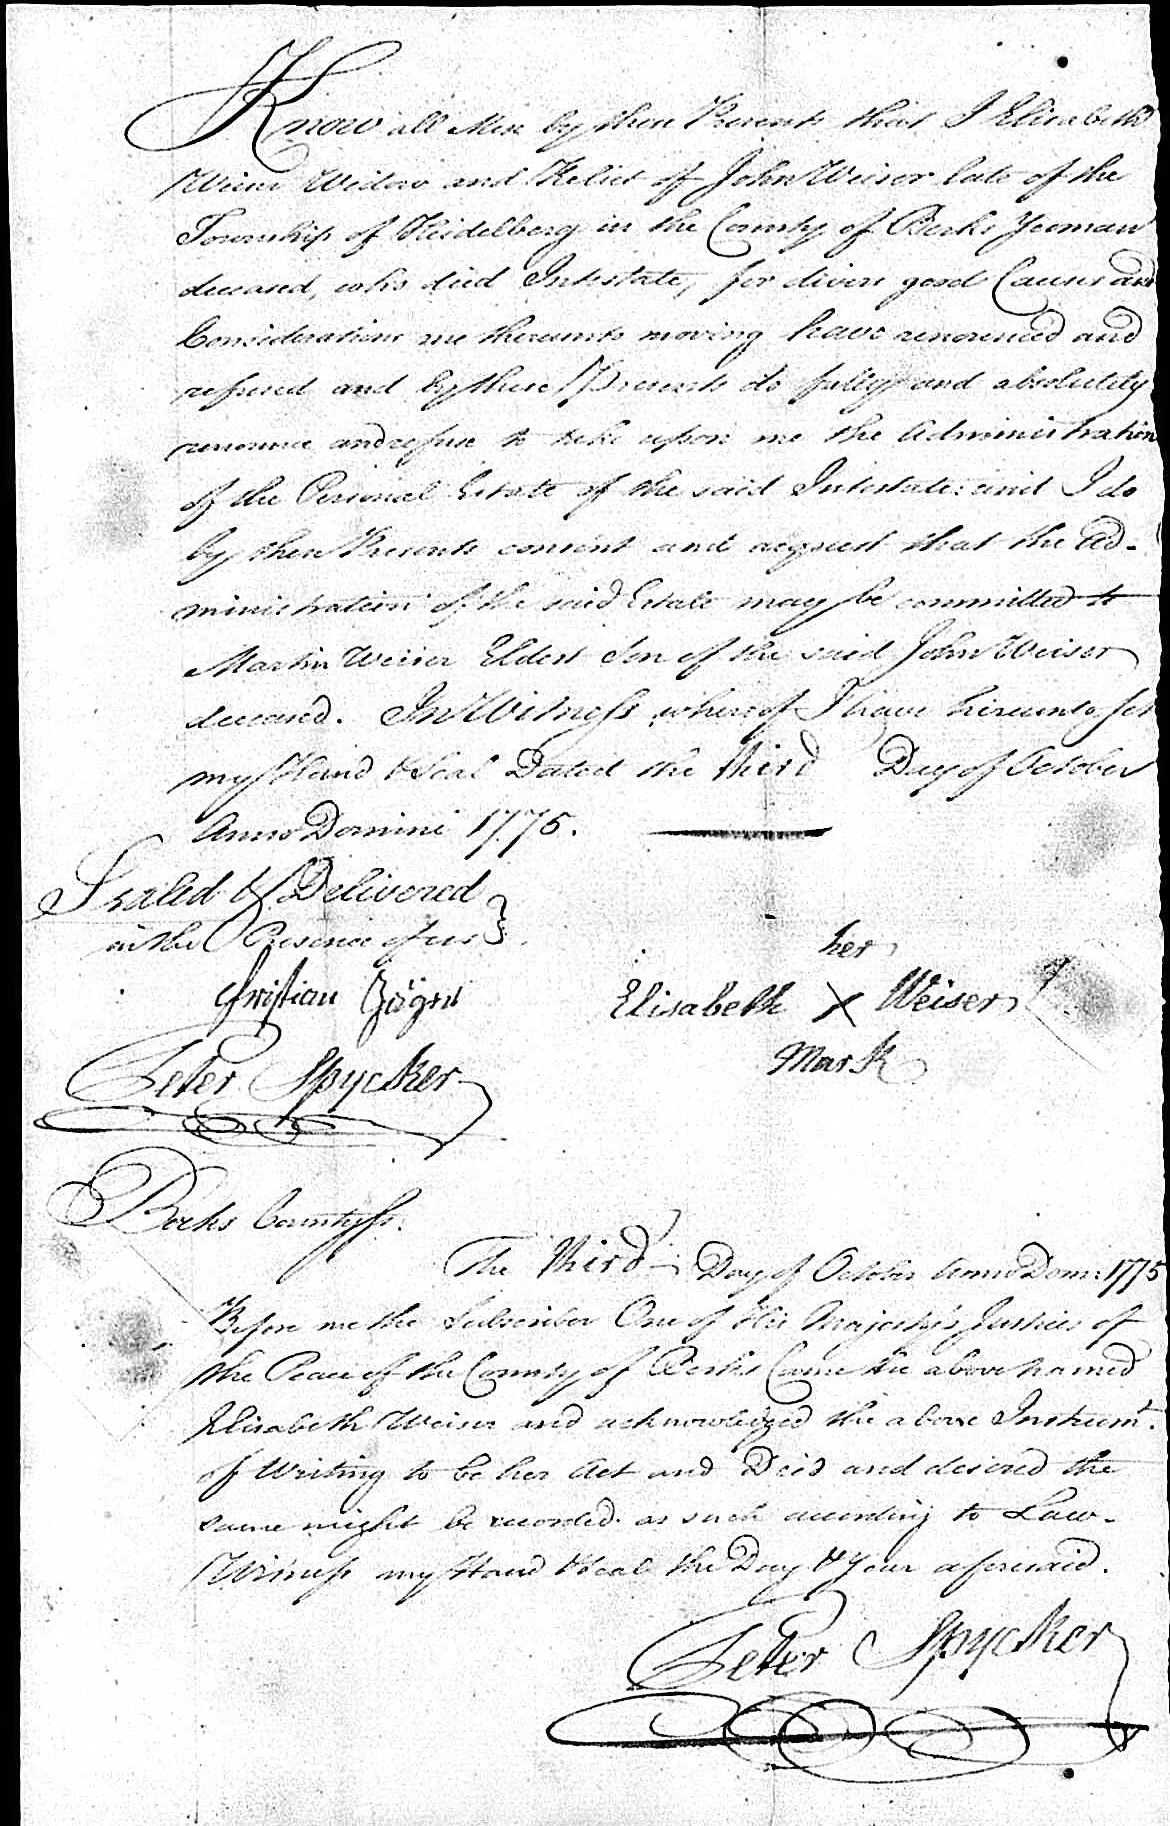 Know all Men by these Presents that I Elisabeth
Weiser Widow and Relict of John Weiser late of the
Township of Heidelberg in the County of Berks Yeoman
deceased, who died Intestate, for divers good Causes and
Considerations me thereunto moving have renounced and
refused and by these Presents do fully and absolutely
renounce and refuse to take upon me the Administration
of the Personal Estate of the said Intestate: and I do
by these Presents consent and request that the Ad-
ministration of the said Estate may be committed to
Martin Weiser Eldest Son of the said John Weiser
deceased. In Witness whereof I have hereunto set
my Hand & Seal Dated the third Day of October
Anno Domini 1775.
Sealed & Delivered
in the Presence of us
her
Christian
Elisabeth X Weiser
Mark
Peter Spycker
Berks County ss.
The third Day of October Anno Dom: 1775
Before me the Subscriber One of His Majesty's Justices of
the Peace of the County of Berks Came the above named
Elisabeth Weiser and acknowledged the above Instrumt.
of Writing to be her Act and Deed and desired the
same might be recorded as such according to Law.
Witness my Hand & Seal the Day & Year aforesaid.
Peter Spycker